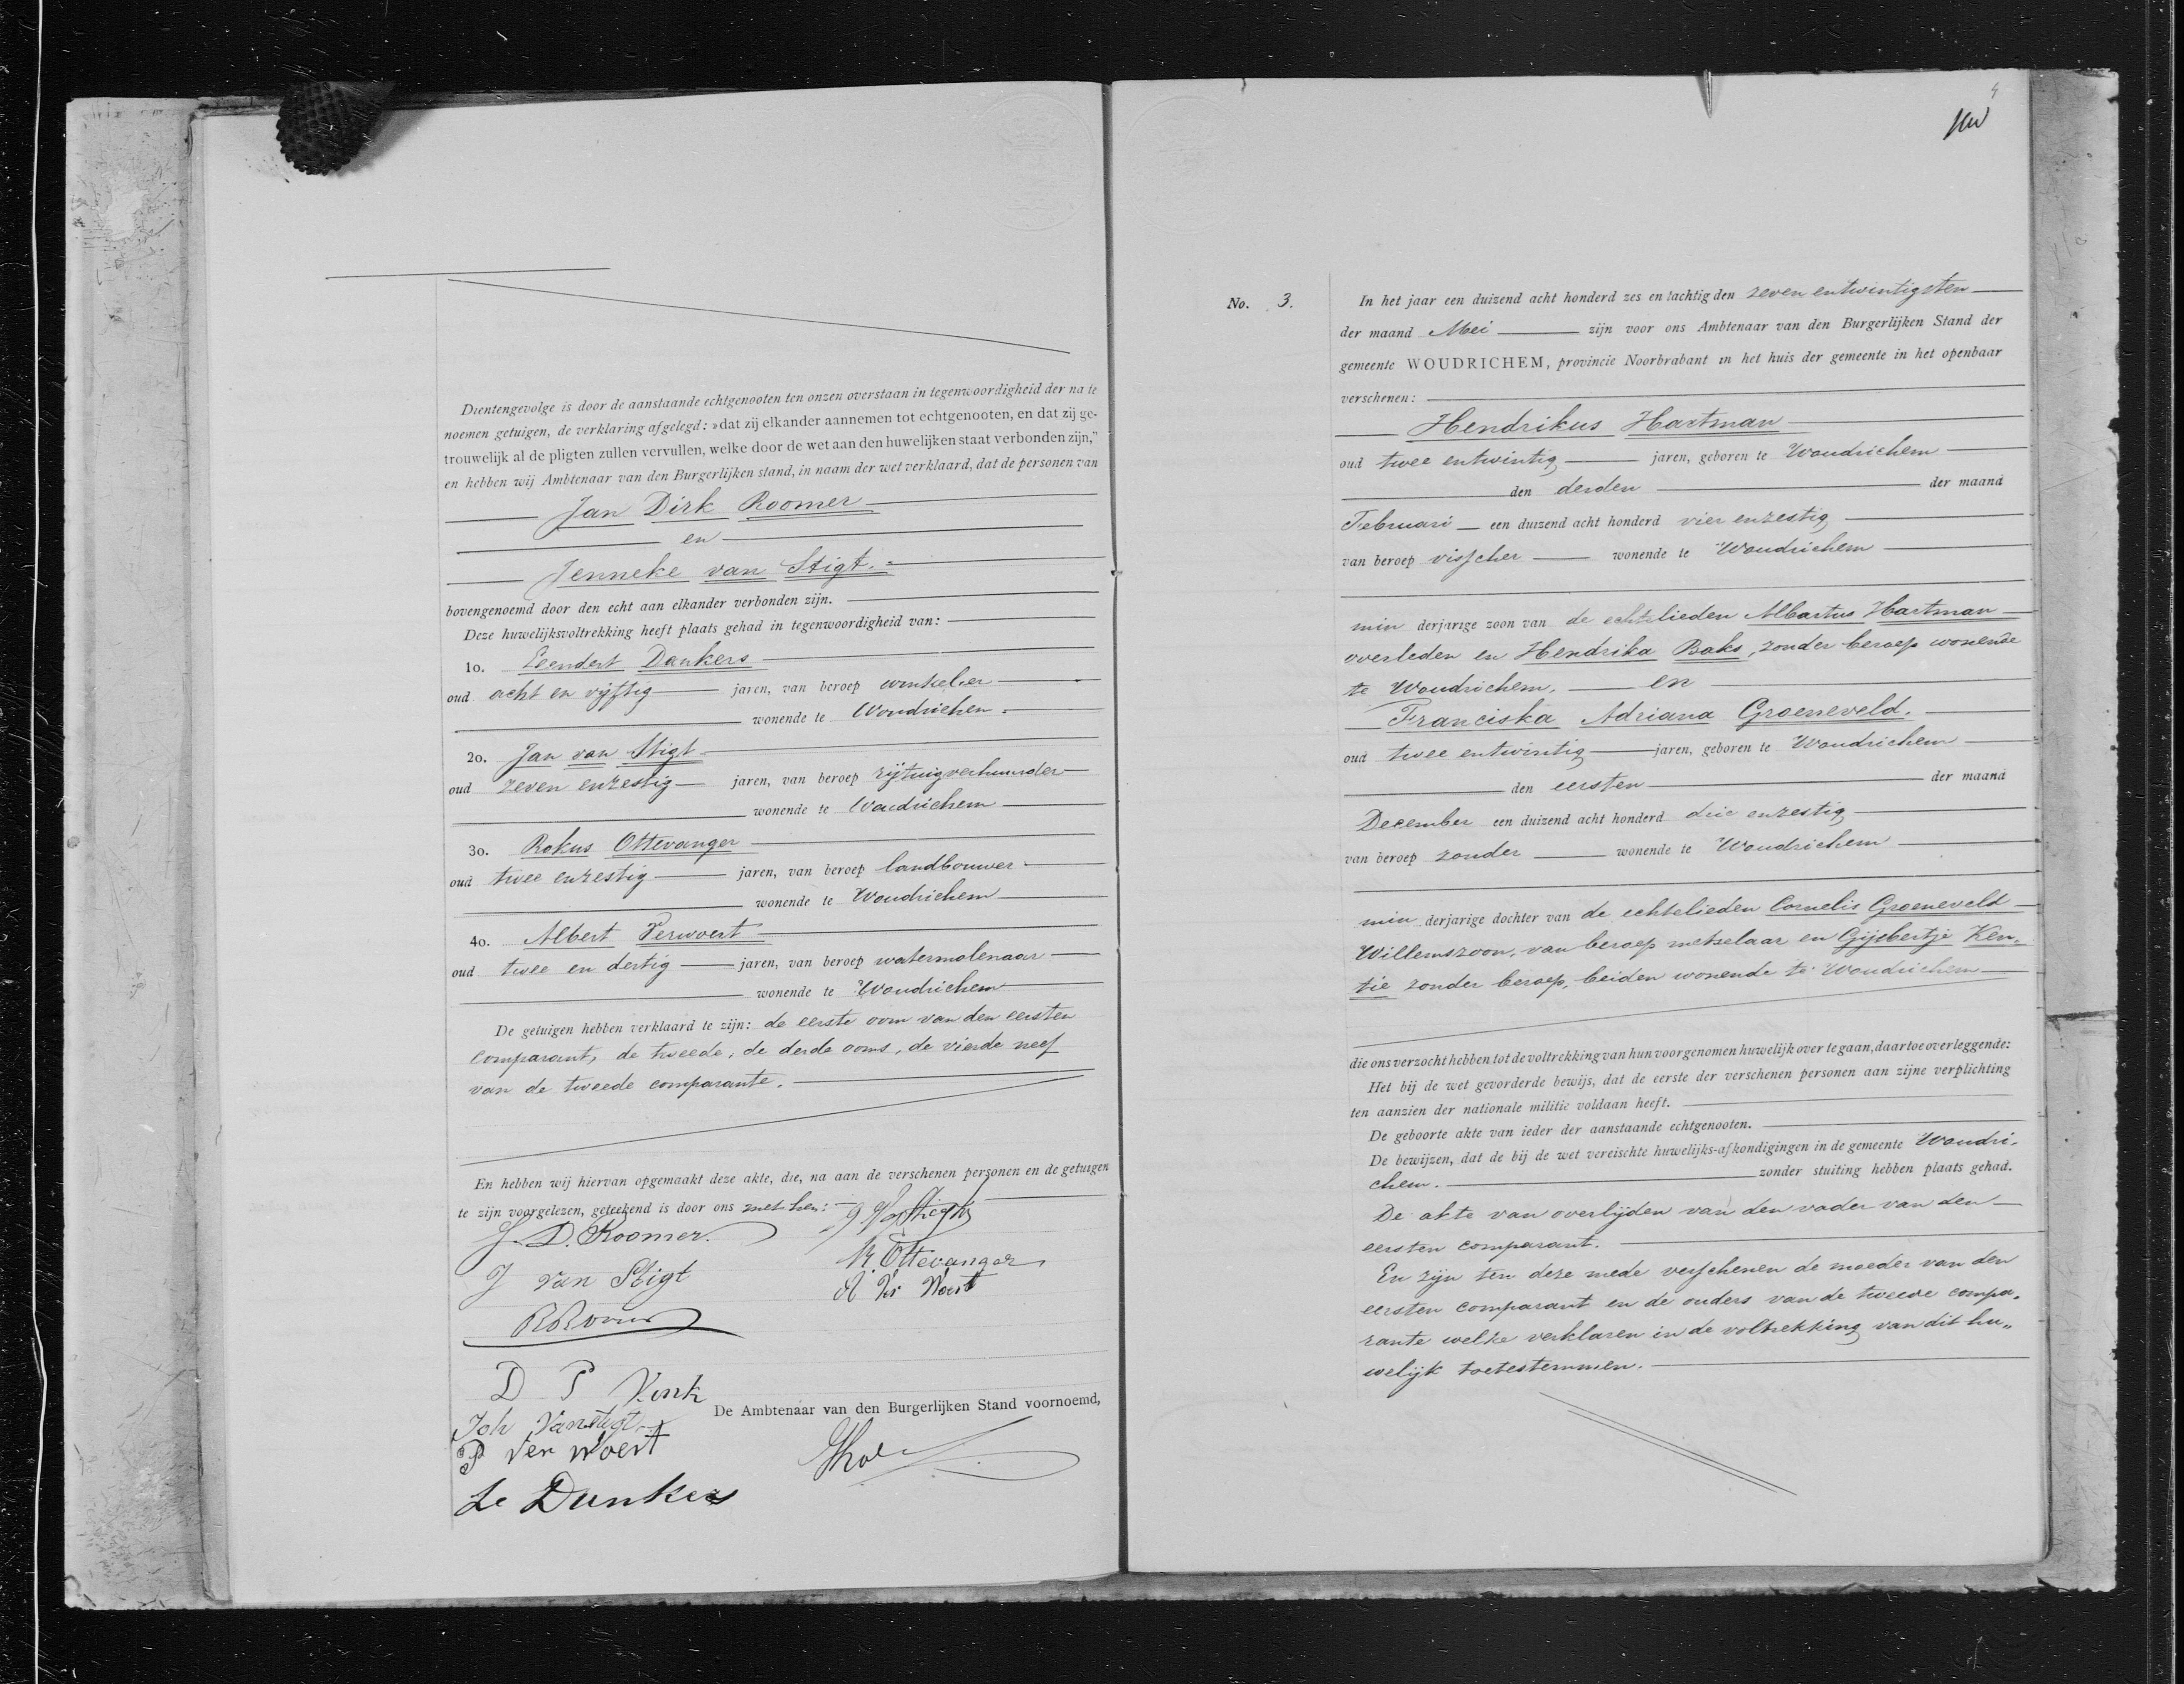 Dientengevolge is door de aanstaande echtgenooten ten onzen overstaan in tegenwoordigheid der na te
noemen getuigen, de verklaring afgelegd: »dat zij elkander aannemen tot echtgenooten, en dat zij ge-
trouwelijk al de pligten zullen vervullen, welke door de wet aan den huwelijken staat verbonden zijn,"
en hebben wij Ambtenaar van den Burgerlijken stand, in naam der wet verklaard, dat de personen van
Jan Dirk Roomer
en
Jenneke van Stigt.
bovengenoemd door den echt aan elkander verbonden zijn.
Deze huwelijksvoltrekking heeft plaats gehad in tegenwoordigheid van:
1o. Leendert Dankers
oud acht en vijftig jaren, van beroep winkelier
wonende te Woudrichem.
2o. Jan van Stigt
oud zeven enzestig jaren, van beroep rijtuigverhuurder
wonende te Woudrichem
3o. Rokus Ottevanger
oud twee enzestig jaren, van beroep landbouwer
wonende te Woudrichem
4o. Albert Verwoert
oud twee en dertig jaren, van beroep watermolenaar
wonende te Woudrichem
De getuigen hebben verklaard te zijn: de eerste oom van den eersten
comparant, de tweede, de derde ooms, de vierde neef
van de tweede comparante.
En hebben wij hiervan opgemaakt deze akte, die, na aan de verschenen personen en de getuigen
te zijn voorgelezen, geteekend is door ons met hen:
J. D. Roomer.
J van Stigt
R. Ottevanger
A Ver Woert
D P Vink
Joh Van Stigt
P Ver Woert
De Ambtenaar van den Burgerlijken Stand voornoemd,
Le Dunkers
4
No. 3.
In het jaar een duizend acht honderd zes en tachtig den zeven entwintigsten
der maand Mei zijn voor ons Ambtenaar van den Burgerlijken Stand der
gemeente WOUDRICHEM, provincie Noorbrabant in het huis der gemeente in het openbaar
verschenen:
Hendrikus Hartman
oud twee entwintig jaren, geboren te Woudrichem
den derden der maand
Februari een duizend acht honderd vier enzestig
van beroep visscher wonende te Woudrichem
min derjarige zoon van de echtelieden Albartus Hartman
overleden en Hendrika Baks, zonder beroep wonende
te Woudrichem. en
Franciska Adriana Groeneveld.
oud twee entwintig jaren, geboren te Woudrichem
den eersten der maand
December een duizend acht honderd drie enzestig
van beroep zonder wonende te Woudrichem
min derjarige dochter van de echtelieden Cornelis Groeneveld
Willemszoon, van beroep metselaar en Gijsbertje Ken-
tie zonder beroep, beiden wonende te Woudrichem
die ons verzocht hebben tot de voltrekking van hun voorgenomen huwelijk over te gaan, daartoe overleggende:
Het bij de wet gevorderde bewijs, dat de eerste der verschenen personen aan zijne verplichting
ten aanzien der nationale militie voldaan heeft.
De geboorte akte van ieder der aanstaande echtgenooten.
De bewijzen, dat de bij de wet vereischte huwelijks-afkondigingen in de gemeente Woudri-
chem. zonder stuiting hebben plaats gehad.
De akte van overlijden van den vader van den
eersten comparant.
En zijn ten deze mede verschenen de moeder van den
eersten comparant en de ouders van de tweede compa-
rante welke verklaren in de voltrekking van dit hu-
welijk toetestemmen.